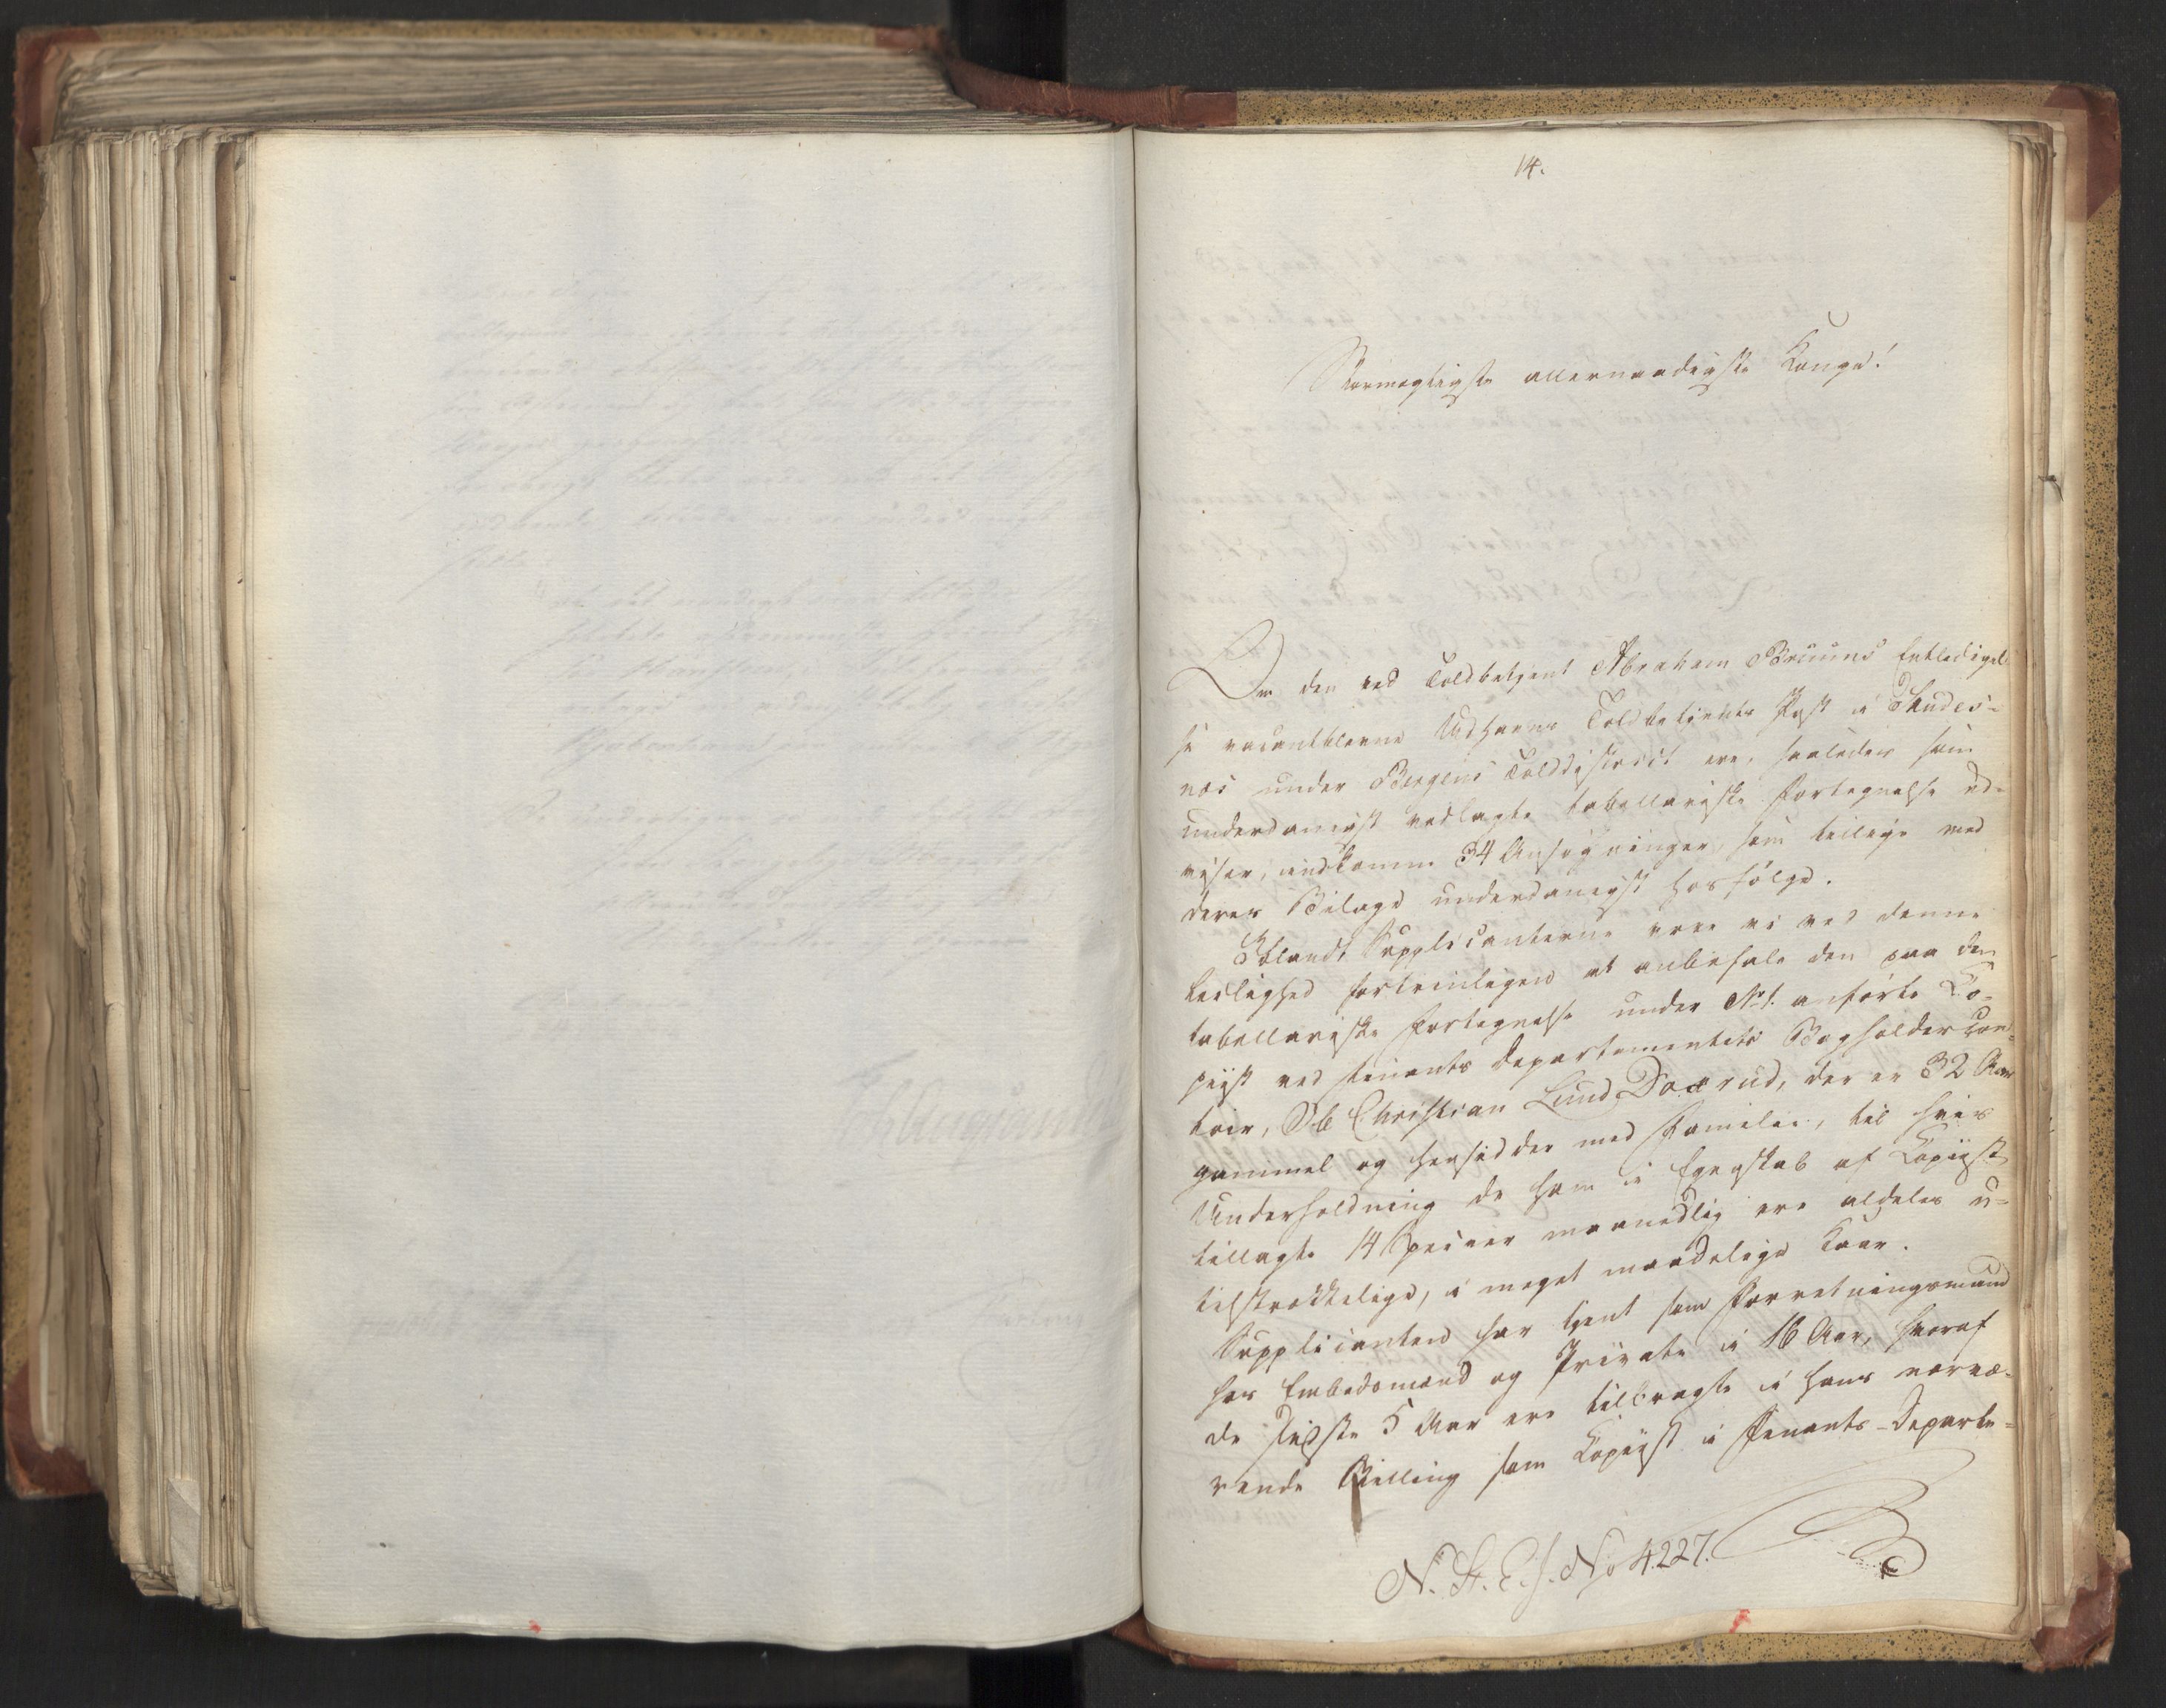 14.
Stormægtigste allernaadigste Konge!
Om den ved Toldbetjent Abraham Bruuns Entledigel-
se vacantblevne Udhavns Toldbetjents Post i Skudes-
næs under Bergens Tolddistrict ere, saaledes som
underdanigst vedlagte tabellariske Fortegnelse ud-
viser, indkomne 34 Ansøgninger, som tillige med
deres Bilage underdanigst hosfølge.
Iblandt Supplicanterne troe vi ved denne
Leilighed fortrinligen at anbefale den paa den
tabellariske Fortegnelse under No 1. anførte Co-
piist ved Finants Departementets Bogholdercon-
toir, Ole Christian Lund Doxrud, der er 32 Aar
gammel og hensidder med Familie, til hvis
Underholdning de ham i Egenskab af Copiist
tillagte 14 Specier maanedlig ere aldeles u-
tilstrækkelige, i meget maadelige Kaar.
Supplicanten har tjent som Forretningsmand
hos Embedsmænd og Private i 16 Aar, hvoraf
de sidste 5 Aar ere tilbragte i hans nærvæ-
rende Stilling som Copiist i Finants-Departe-
N. St. E. J. No 4227.